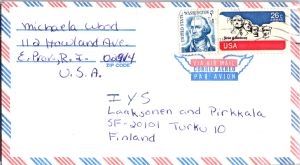 Michaela Wood
112 Howland Ave.
E. Prov., R.I. 02914
ZIP CODE
U.S.A.
UNITED STATES
WASHINGTON
5¢
26c
USA
VIA AIR MAIL
CORREO AEREO
PAR AVION
IYS
Laaksonen and Pirkkala
SF-20101 Turku 10
Finland